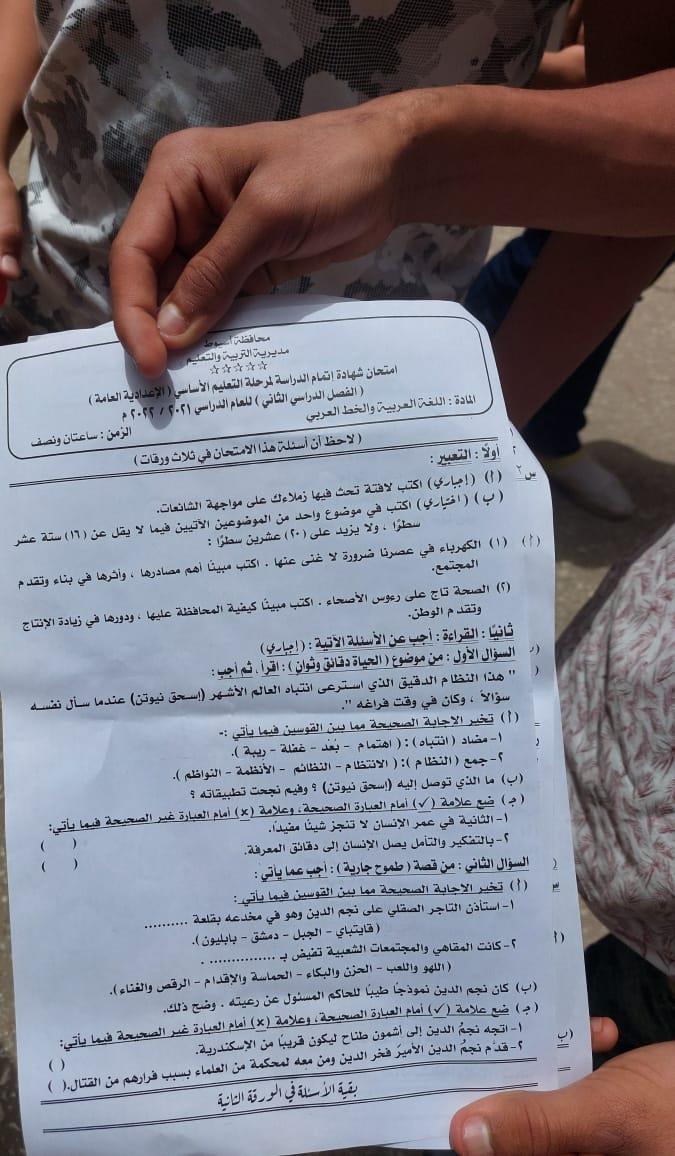 محافظة أسيوط
مديرية التربية والتعليم
☆☆☆☆☆
امتحان شهادة إتمام الدراسة لمرحلة التعليم الأساسي ( الإعدادية العامة )
( الفصل الدراسي الثاني ) للعام الدراسي ٢٠٢١ / ٢٠٢٢ م
المادة : اللغة العربية والخط العربي
الزمن : ساعتان ونصف
( لاحظ أن أسئلة هذا الامتحان في ثلاث ورقات )
أولاً : التعبير :
(أ) (إجباري) اكتب لافتة تحث فيها زملاءك على مواجهة الشائعات.
(ب) (اختياري) اكتب في موضوع واحد من الموضوعين الآتيين فيما لا يقل عن (١٦) ستة عشر
سطرًا ، ولا يزيد على (٢٠) عشرين سطرًا :
(١) الكهرباء في عصرنا ضرورة لا غنى عنها . اكتب مبينًا أهم مصادرها ، وأثرها في بناء وتقدم
المجتمع.
(٢) الصحة تاج على رءوس الأصحاء . اكتب مبينًا كيفية المحافظة عليها ، ودورها في زيادة الإنتاج
وتقدم الوطن.
ثانيًا : القراءة : أجب عن الأسئلة الآتية : (إجباري)
السؤال الأول : من موضوع ( الحياة دقائق وثوان ) : اقرأ ، ثم أجب :
" هذا النظام الدقيق الذي استرعى انتباه العالم الأشهر (إسحق نيوتن) عندما سأل نفسه
سؤالاً ، وكان في وقت فراغه ".
(أ) تخير الإجابة الصحيحة مما بين القوسين فيما يأتي :-
١- مضاد (انتباه) : ( اهتمام - بُعد - غفلة - ريبة ).
٢- جمع ( النظام ) : ( الانتظام - النظائم - الأنظمة - النواظم ).
(ب) ما الذي توصل إليه (إسحق نيوتن) ؟ وفيم نجحت تطبيقاته ؟
(جـ) ضع علامة (✓) أمام العبارة الصحيحة، وعلامة (x) أمام العبارة غير الصحيحة فيما يأتي:
١- الثانية في عمر الإنسان لا تنجز شيئًا مفيدًا. ( )
٢- بالتفكير والتأمل يصل الإنسان إلى دقائق المعرفة. ( )
السؤال الثاني : من قصة ( طموح جارية ) : أجب عما يأتي :
(أ) تخير الإجابة الصحيحة مما بين القوسين فيما يأتي :
١- استأذن التاجر الصقلي على نجم الدين وهو في مخدعه بقلعة ..........
( قايتباي - الجبل - دمشق - بابليون ).
٢- كانت المقاهي والمجتمعات الشعبية تفيض بـ ............... .
( اللهو واللعب - الحزن والبكاء - الحماسة والإقدام - الرقص والغناء ).
(ب) كان نجم الدين نموذجًا طيبًا للحاكم المسئول عن رعيته . وضح ذلك.
(جـ) ضع علامة (✓) أمام العبارة الصحيحة، وعلامة (x) أمام العبارة غير الصحيحة فيما يأتي:
١- اتجه نجمُ الدين إلى أشمون طناح ليكون قريبًا من الإسكندرية. ( )
٢- قدَّم نجمُ الدين الأميرَ فخر الدين ومن معه لمحكمة من العلماء بسبب فرارهم من القتال. ( )
بقية الأسئلة في الورقة الثانية